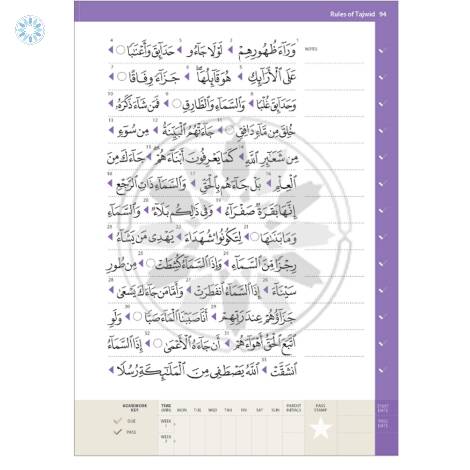 Rules of Tajwid 94
وَرَآءَ ظُهُورِهِمْ لَوْلَا جَآءُو حَدَآئِقَ وَأَعْنَٰبًا
NOTES
عَلَى ٱلْأَرَآئِكِ هُوَ قَآئِلُهَا جَزَآءً وِفَاقًا
وَحَدَآئِقَ غُلْبًا وَٱلسَّمَآءِ وَٱلطَّارِقِ فَمَن شَآءَ ذَكَرَهُۥ
خُلِقَ مِن مَّآءٍ دَافِقٍ جَآءَتْهُمُ ٱلْبَيِّنَةُ مِن سُوٓءٍ
مِن شَعَآئِرِ ٱللَّهِ كَمَا يَعْرِفُونَ أَبْنَآءَهُمْ جَآءَكَ مِنَ
ٱلْعِلْمِ بَلْ جَآءَهُم بِٱلْحَقِّ وَٱلسَّمَآءِ ذَاتِ ٱلرَّجْعِ
إِنَّهَا بَقَرَةٌ صَفْرَآءُ وَفِى ذَٰلِكُم بَلَآءٌ وَٱلسَّمَآءِ
وَمَا بَنَىٰهَا لِتَكُونُوا۟ شُهَدَآءَ يَهْدِى مَن يَشَآءُ
رِجْزًا مِّنَ ٱلسَّمَآءِ وَإِذَا ٱلسَّمَآءُ كُشِطَتْ مِن طُورِ
سَيْنَآءَ إِذَا ٱلسَّمَآءُ ٱنفَطَرَتْ وَأَمَّا مَن جَآءَكَ يَسْعَىٰ
جَزَآؤُهُمْ عِندَ رَبِّهِمْ أَنَّا صَبَبْنَا ٱلْمَآءَ صَبًّا وَلَوِ
ٱتَّبَعَ ٱلْحَقُّ أَهْوَآءَهُمْ أَن جَآءَهُ ٱلْأَعْمَىٰ إِذَا ٱلسَّمَآءُ
ٱنشَقَّتْ ٱللَّهُ يَصْطَفِى مِنَ ٱلْمَلَٰٓئِكَةِ رُسُلًا
HOMEWORK KEY
DUE
PASS
TIME (MIN) MON TUE WED THU FRI SAT SUN
WEEK 1
WEEK 2
PARENT INITIALS
PASS STAMP
START DATE
PASS DATE